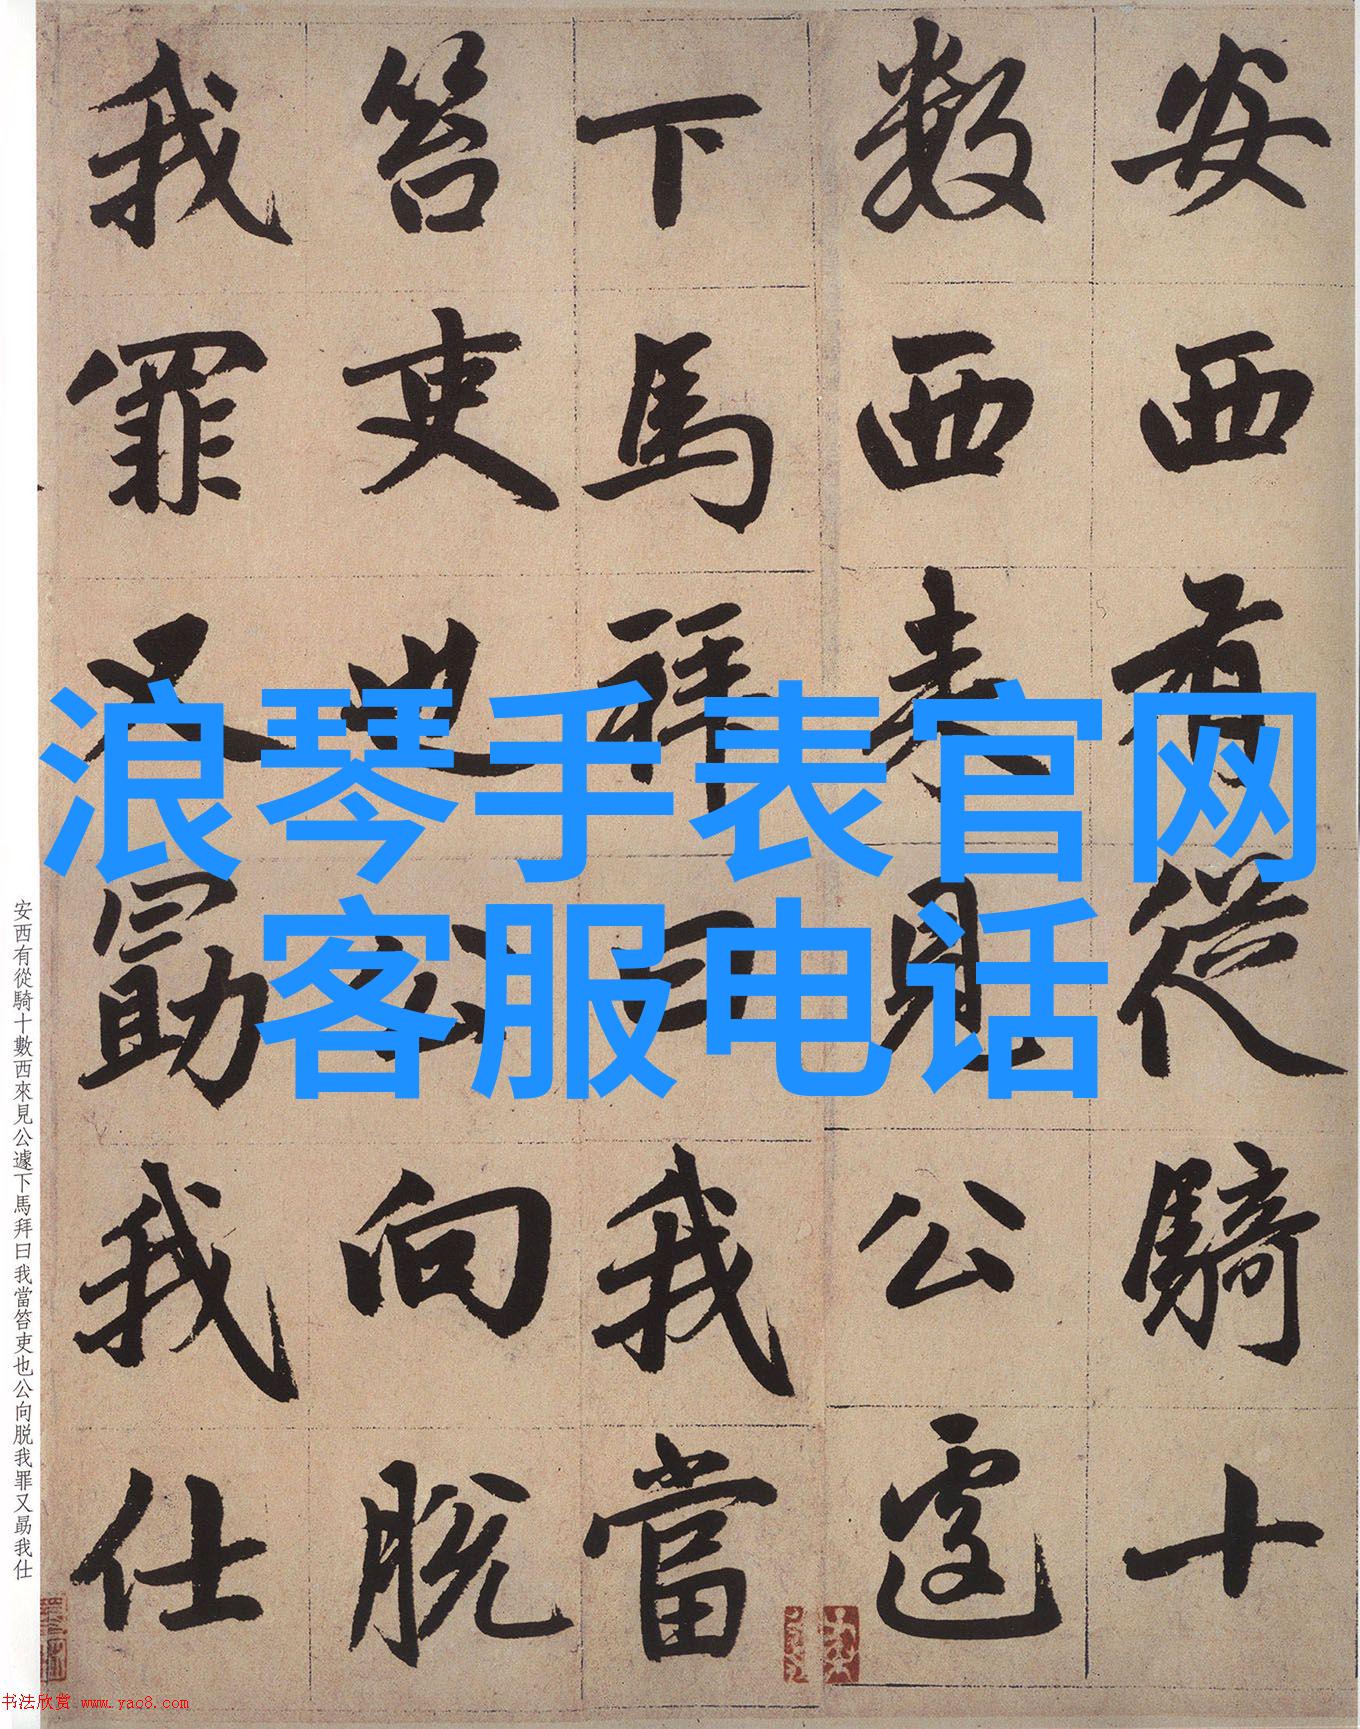 安西有從騎十
數西來見公遽
下馬拜曰我當
笞吏也公向脱
我罪又勗我仕
浪琴手表官网
客服电话
安西有從騎十數西來見公遽下馬拜曰我當笞吏也公向脱我罪又勗我仕
书法欣赏 www.yac8.com